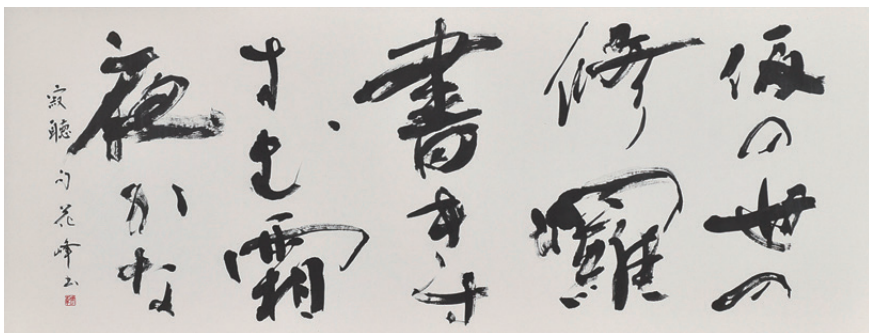 仮の世の
修羅
書きす
すむ霜
夜かな
寂聴句 花峰書